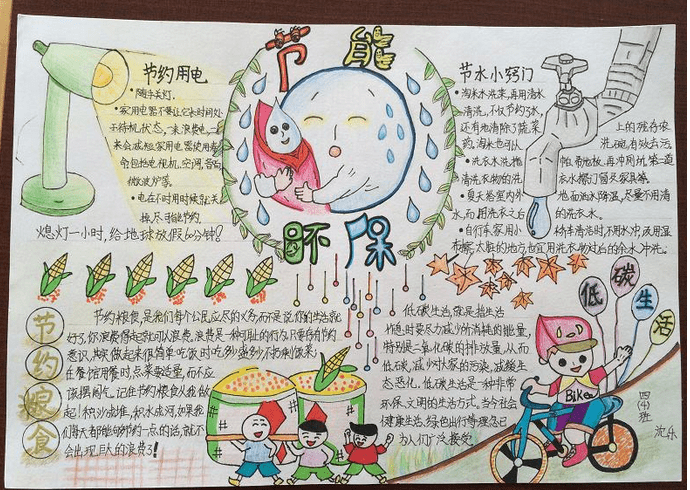 节能
环保
节约用电
• 随手关灯.
• 家用电器不要让它长时间处
于待机状态,一来浪费电,二
来会减短家用电器使用寿
命包括电视机,空调,
微波炉等。
• 电在不用时候就关
掉,尽可能节约
熄灯一小时,给地球放假60分钟!
节水小窍门
• 淘米水洗菜,再用清水
清洗,不仅节约了水,
还有效地清除了蔬菜
上的残存农
药,淘米水也可以
洗碗,有效去污
• 洗衣水洗拖
帕、帚地板、再冲厕坑,第二道
清洗衣物的洗
• 夏天给室内外
地面洒水降温,尽量不用清
水,而用洗衣之后
的洗衣水.
• 自行车、家用小
轿车清洁时,不用水冲,改用湿
布擦,太脏的地方也宜用洗衣物过后的余水冲洗.
节约粮食
节约粮食,是我们每个公民应尽的义务,而不是说你的生活
好了,你浪费得起就可以浪费,浪费是一种可耻的行为,只要存有节约
意识,其实做起来很简单:吃饭时吃多少盛多少不扔剩饭菜;
在餐馆用餐时点菜要适量,而不应
该摆阔气,记住节约粮食从我做
起!积沙成堆,积水成河,如果我
们每天都能够节约一点的话,就不
会出现巨大的浪费了!
低碳生活
低碳生活,就是指生活
作息时要尽力减少所消耗的能量,
特别是二氧化碳的排放量,从而
低碳,减少对大气的污染,减缓生
态恶化,低碳生活是一种非常
环保、文明的生活方式,当今社会
健康生活,绿色出行等理念已
为人们广泛接受
Bike
四(4)班
沈乐